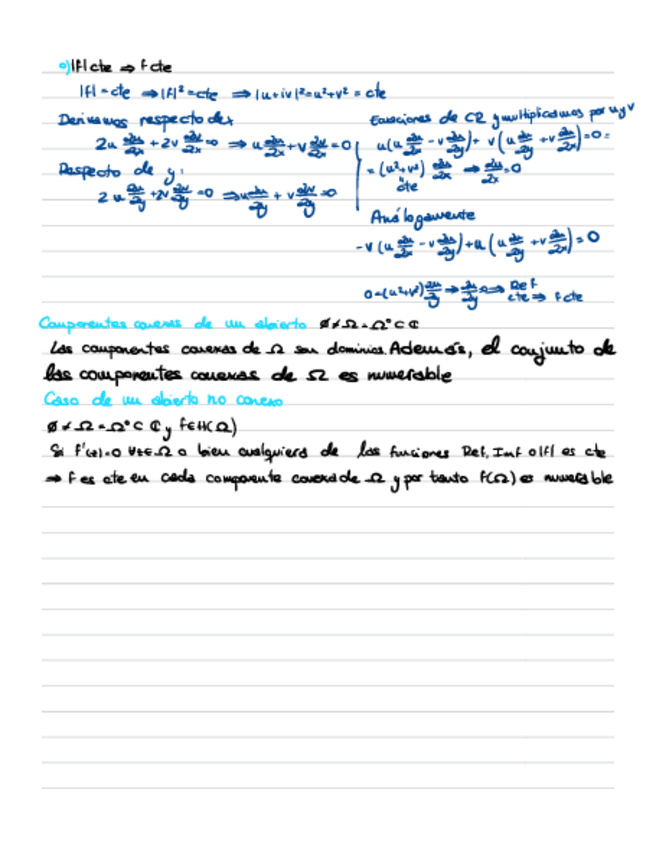 o) |f| cte ⇒ f cte
|f| = cte ⇒ |f|² = cte ⇒ |u+iv|² = u²+v² = cte
Derivamos respecto de x
2u ∂u/∂x + 2v ∂v/∂x = 0 ⇒ u ∂u/∂x + v ∂v/∂x = 0
Respecto de y:
2u ∂u/∂y + 2v ∂v/∂y = 0 ⇒ u ∂u/∂y + v ∂v/∂y = 0
Ecuaciones de CR y multiplicamos por u y v
u(u ∂u/∂x - v ∂u/∂y) + v(u ∂u/∂y + v ∂u/∂x) = 0 =
= (u²+v²) ∂u/∂x ⇒ ∂u/∂x = 0
cte
Análogamente
-v(u ∂u/∂x - v ∂u/∂y) + u(u ∂u/∂y + v ∂u/∂x) = 0
0 = (u²+v²) ∂u/∂y ⇒ ∂u/∂y = 0 ⇒ Re f cte ⇒ f cte
Componentes conexas de un abierto ∅ ≠ Ω = Ω° ⊂ ℂ
Las componentes conexas de Ω son dominios. Además, el conjunto de
las componentes conexas de Ω es numerable
Caso de un abierto no conexo
∅ ≠ Ω = Ω° ⊂ ℂ y f ∈ H(Ω)
Si f'(z) = 0 ∀z ∈ Ω o bien cualquiera de las funciones Re f, Im f o |f| es cte
⇒ f es cte en cada componente conexa de Ω y por tanto f(Ω) es numerable